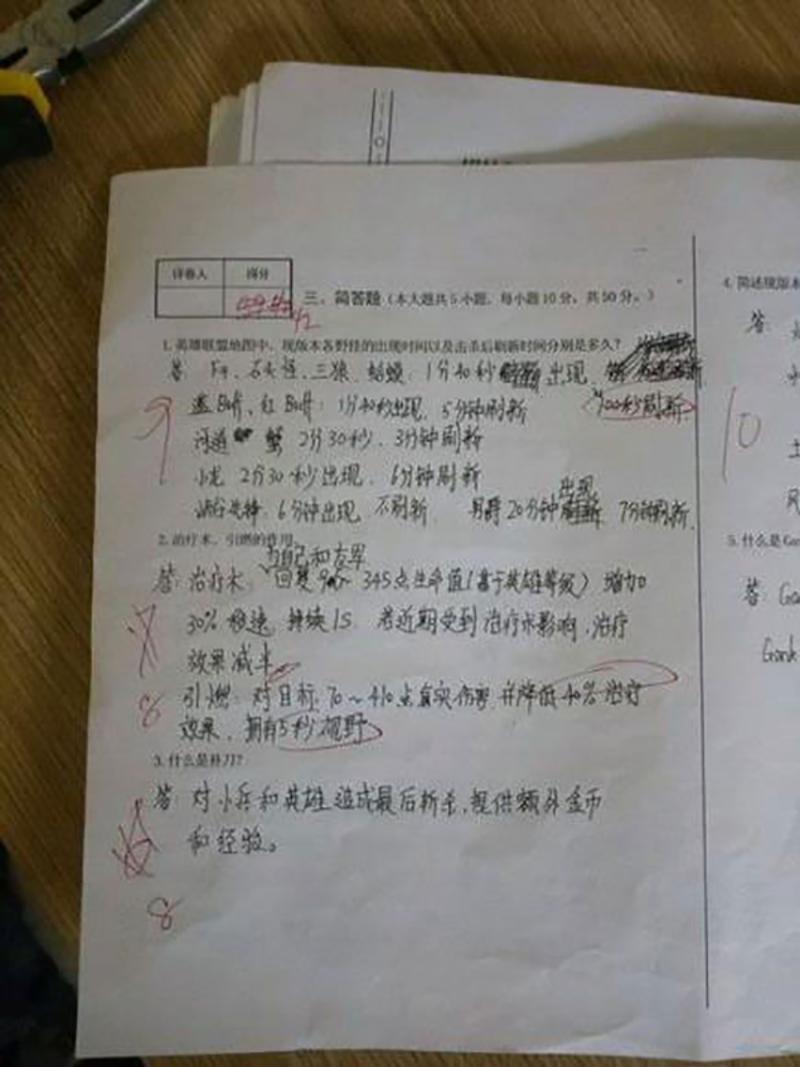 评卷人 得分
三、简答题（本大题共5小题，每小题10分，共50分。）
1.英雄联盟地图中，现版本各野怪的出现时间以及击杀后刷新时间分别是多久？
答: F4、石头怪、三狼、蛤蟆: 1分40秒 出现
100秒刷新
蓝Buff、红Buff: 1分40秒出现、5分钟刷新
河道 蟹 2分30秒、3分钟刷新
小龙 2分30秒出现、6分钟刷新
峡谷先锋: 6分钟出现、不刷新、男爵 20分钟出现 7分钟刷新.
9
2.治疗术、引燃的作用
答: 治疗术: 为自己和友军回复90~345点生命值(基于英雄等级) 增加
30% 移速, 持续1S. 若近期受到治疗术影响, 治疗
效果减半
引燃: 对目标 70~410点真实伤害 并降低40%治疗
效果, 拥有5秒视野
8
3.什么是补刀?
答: 对小兵和英雄造成最后斩杀,提供额外金币
和经验。
8
4.简述现版本
答:
10
土
风
5.什么是Gan
答: Gan
Gank